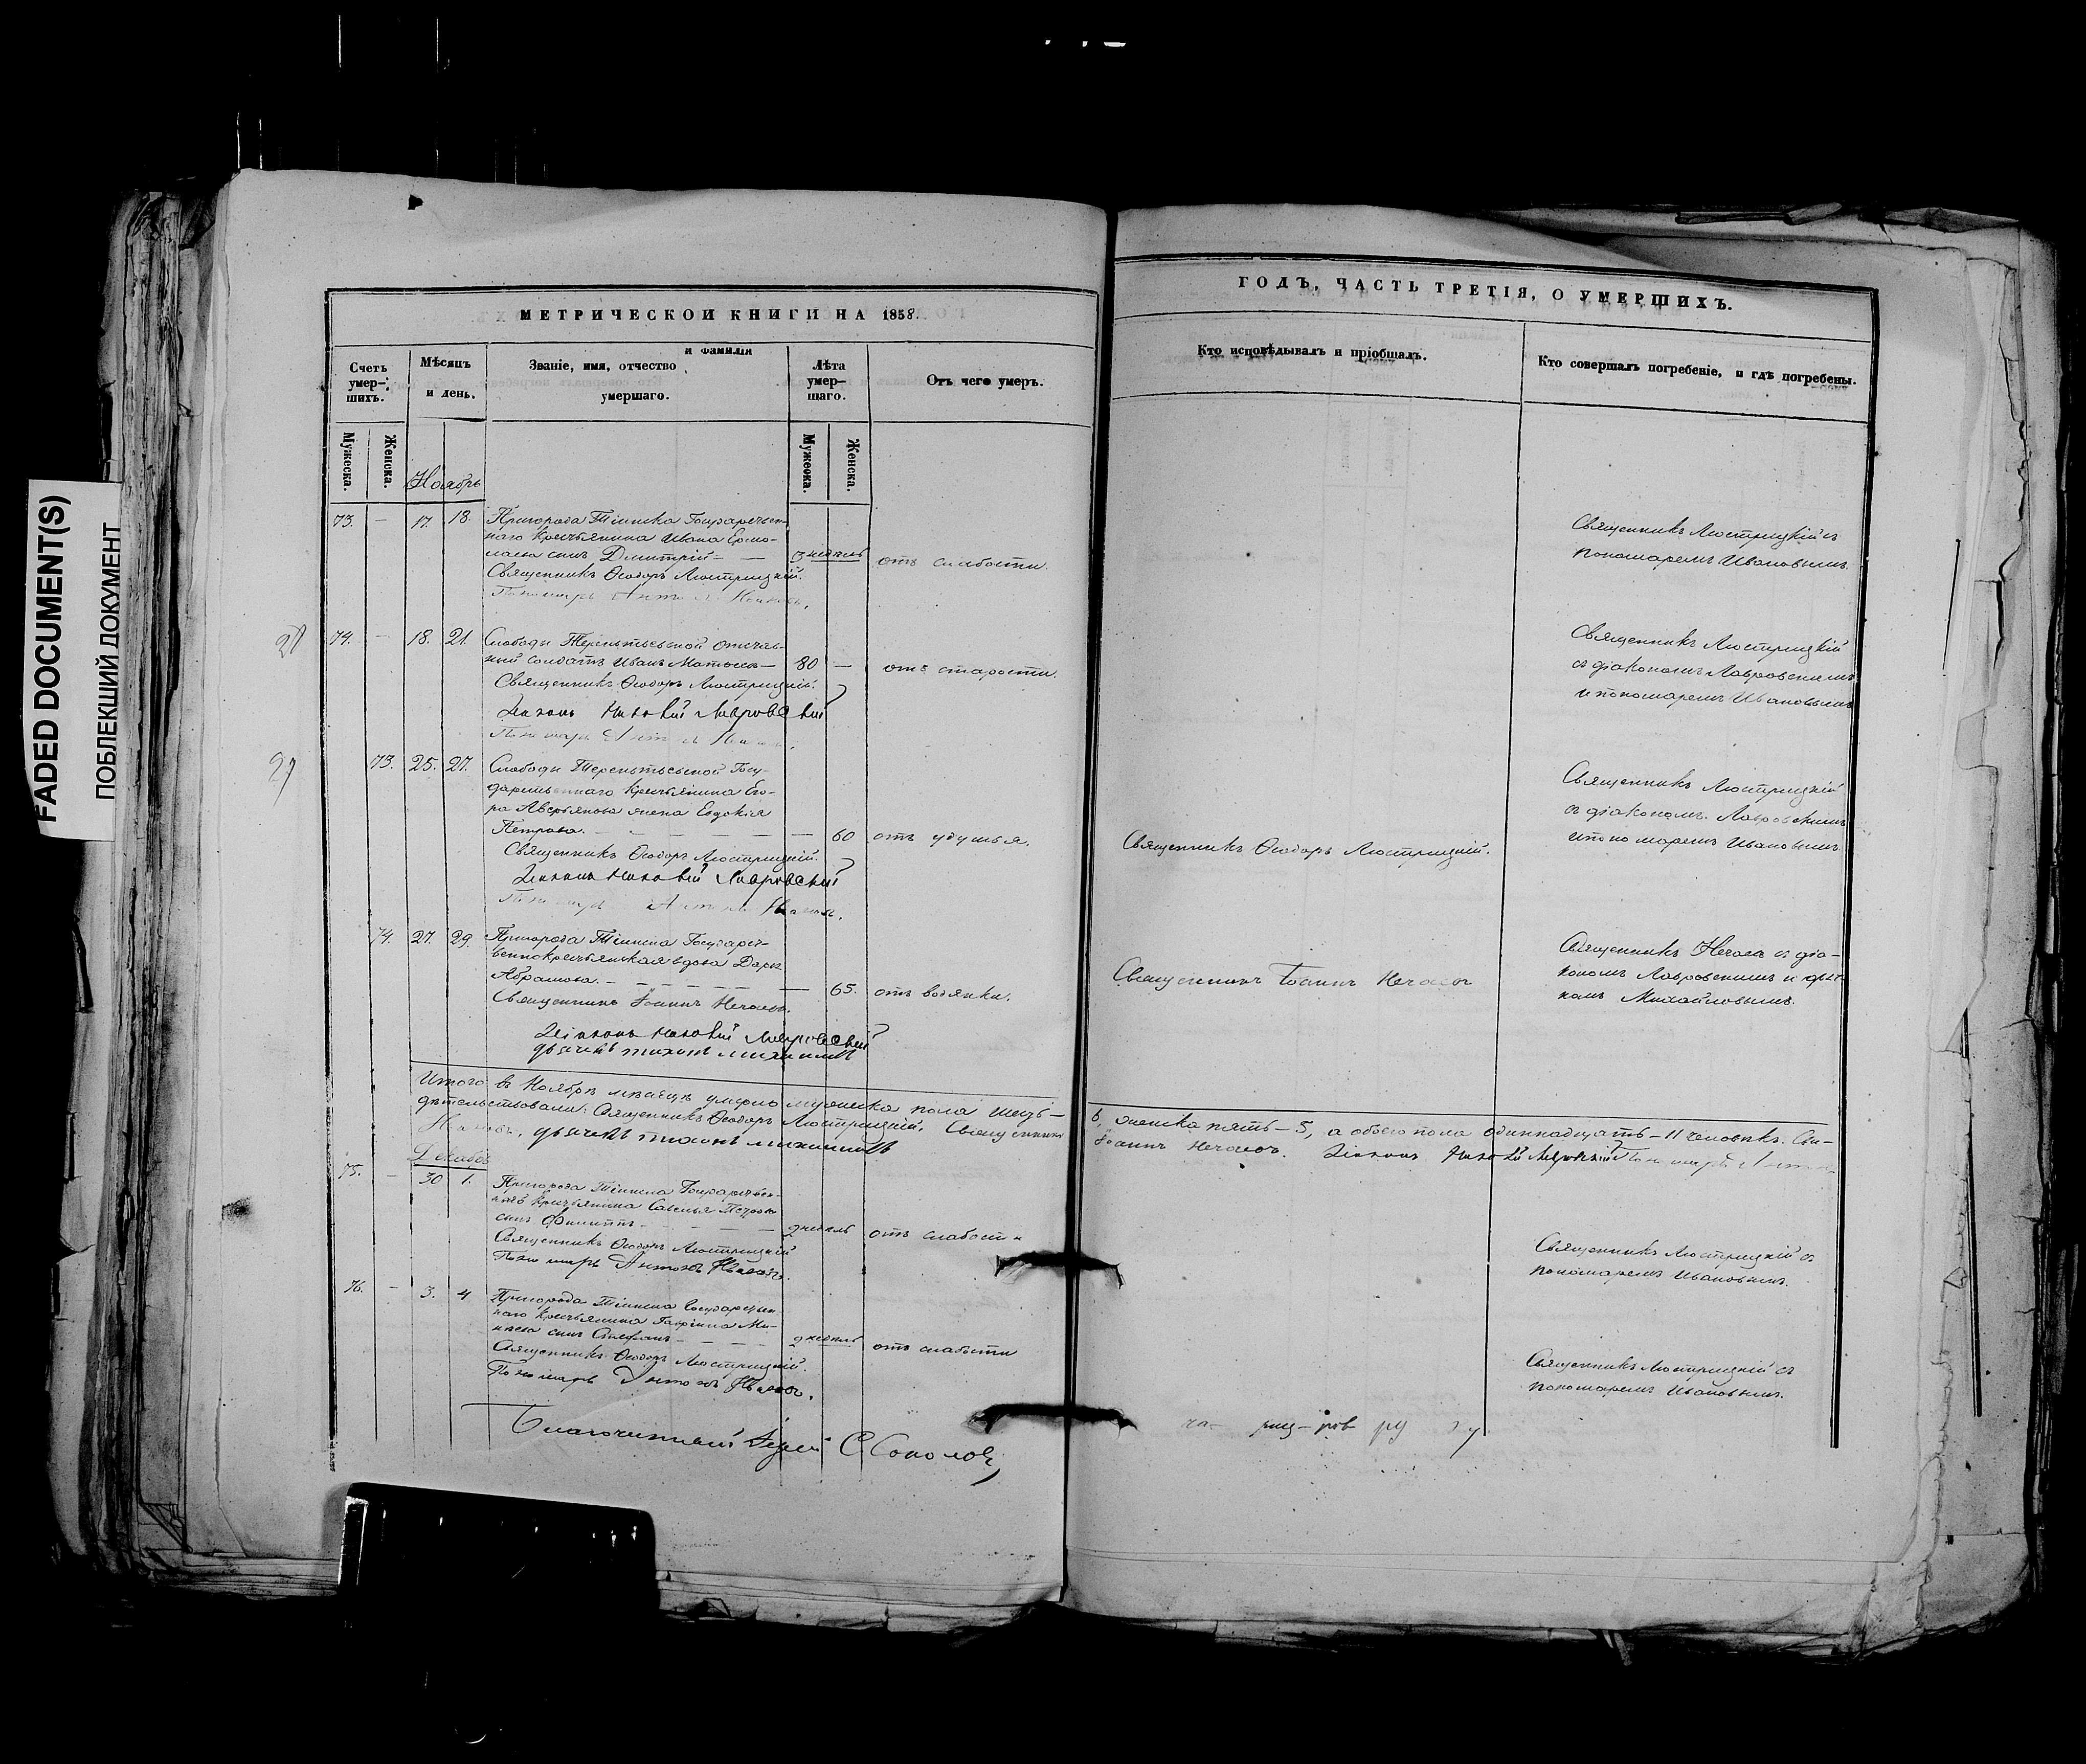 FADED DOCUMENT(S)
ПОБЛЕКШИЙ ДОКУМЕНТ
МЕТРИЧЕСКОИ КНИГИ НА 1858.
Счетъ умер-шихъ.
Мѣсяцъ и день.
Званіе, имя, отчество и фамилія умершаго.
Лѣта умер-шаго.
Отъ чего умеръ.
Мужеска.
Женска.
Мужеска.
Женска.
Ноябрь
73. — 17. 18. Пригорода Тіинска Государствен-
наго крестьянина Ивана Ермо-
лаева сынъ Дмитрій — — 3 недѣль отъ слабости.
Священникъ Ѳеодоръ Люстрицкій.
Пономарь Антонъ Ивановъ.
28
74. — 18. 21. Слободы Терентьевской отстав-
ный солдатъ Иванъ — 80 — отъ старости.
Священникъ Ѳеодоръ Люстрицкій.
Діаконъ Лавровскій
Пономарь Антонъ Ивановъ.
29
73. 25. 27. Слободы Терентьевской Госу-
дарственнаго крестьянина Его-
ра Аверьянова жена Евдокія
Петрова. — — — — 60 отъ удушья.
Священникъ Ѳеодоръ Люстрицкій.
Діаконъ Лавровскій
Пономарь Антонъ Ивановъ.
74. 27. 29. Пригорода Тіинска Государст-
веннокрестьянская вдова Дарья
Абрамова. — — — — 65. отъ водянки.
Священникъ Іоаннъ Нечаевъ.
Діаконъ Лавровскій
дьячекъ Тихонъ Михайловъ
Итого въ Ноябрѣ мѣсяцѣ умерло мужеска пола шесть —
дѣтельствовали: Священникъ Ѳеодоръ Люстрицкій. Священникъ
Ивановъ, дьячекъ Тихонъ Михайловъ
Декабрь
75. — 30 1. Пригорода Тіинска Государствен-
наго крестьянина Савелья Петрова
сынъ Филиппъ — — — 2 недѣль отъ слабости
Священникъ Ѳеодоръ Люстрицкій
Пономарь Антонъ Ивановъ.
76. — 3. 4 Пригорода Тіинска Государствен-
наго крестьянина Гавріила Ми-
сынъ Стефанъ — — 2 недѣль отъ слабости
Священникъ Ѳеодоръ Люстрицкій.
Пономарь Антонъ Ивановъ.
Благочинный Іерей С. Соколовъ
ГОДЪ, ЧАСТЬ ТРЕТІЯ, О УМЕРШИХЪ.
Кто исповѣдывалъ и пріобщалъ.
Кто совершалъ погребеніе, и гдѣ погребены.
Священникъ Люстрицкій съ
пономаремъ Ивановымъ.
Священникъ Люстрицкій
съ діакономъ Лавровскимъ
и пономаремъ Ивановымъ
Священникъ Ѳеодоръ Люстрицкій.
Священникъ Люстрицкій
съ діакономъ Лавровскимъ
и пономаремъ Ивановымъ
Священникъ Іоаннъ Нечаевъ
Священникъ Нечаевъ съ діа-
кономъ Лавровскимъ и дьяч-
комъ Михайловымъ.
6, женска пять — 5, а обоего пола одиннадцать — 11 человѣкъ. Сви-
Іоаннъ Нечаевъ. Діаконъ Лавровскій Пономарь Антонъ
Священникъ Люстрицкій съ
пономаремъ Ивановымъ.
Священникъ Люстрицкій съ
пономаремъ Ивановымъ.